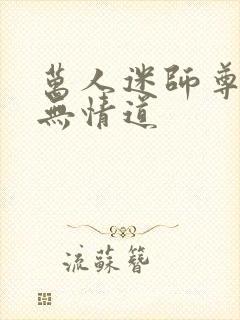 萬人迷師尊
無情道
流蘇簪